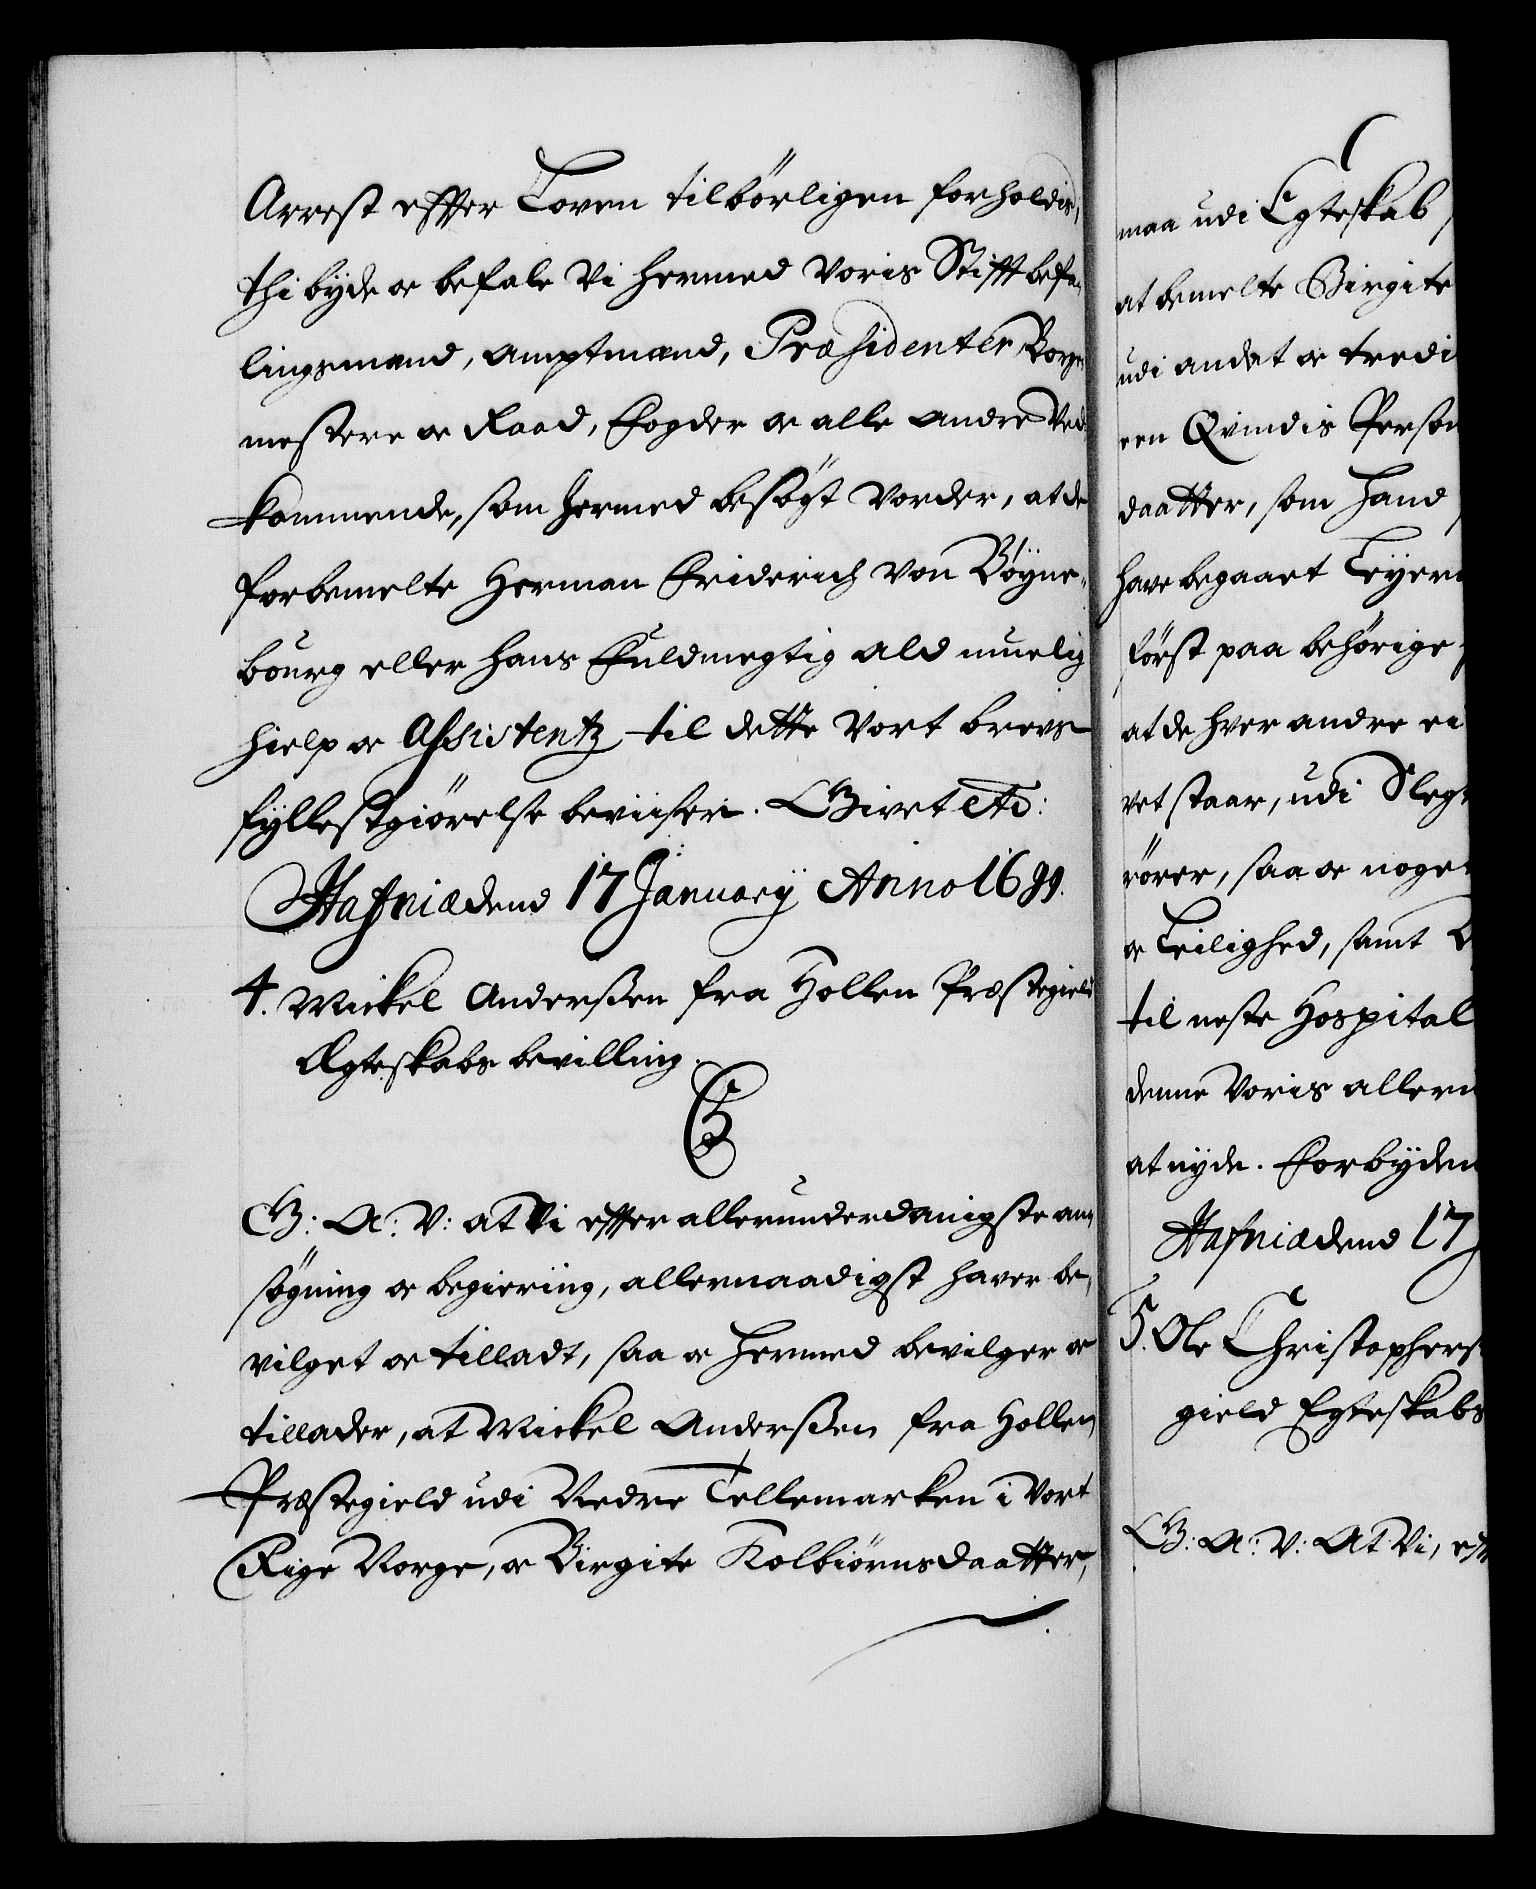 Arrest effter Loven tilbörligen forholdis,
thi byde oc befale Vi hermed Voris Stifftbefa„
lingsmænd, Amptmænd, Præsidenter, Borge„
mestere oc Raad, Fogder oc alle andre Ved„
kommende, som hermed besögt Vorder, at de
forbemelte Herman Friderich Von Böyne„
bourg eller hans Fuldmegtig ald muelig
hielp oc Assistentz til dette Vort brevs
fyllestgiörelse beviiser. Givet etc:
Hafniæ dend 17 January Anno 1691.
4. Mickel Anderßen fra Hollen Præstegield
Ægteskabs bevilling.
G: A: V: at Vi effter allerunderdanigste an„
sögning oc begiering, allernaadigst haver be„
vilget oc tilladt, saa oc hermed bevilger oc
tillader, at Mickel Anderßen fra Hollen
Præstegield udi Nedre Tellemarken i Vort
Rige Norge, oc Birgite Kolbiörnsdaatter,
maa udi Egteskab
at bemelte Birgite
udi andet oc tredi
een Qvindis Person
daatter, som hand
have begaaet Leyerm
först paa behörige
at de hver andre ei
vet staar, udi Slegt
rörer, saa oc noget
oc Leilighed, samt
til neste Hospital
denne Voris allern
at nyde. Forbyden
Hafniæ dend 17
5. Ole Christophers
gield Egteskabs
G: A: V: At Vi, eff